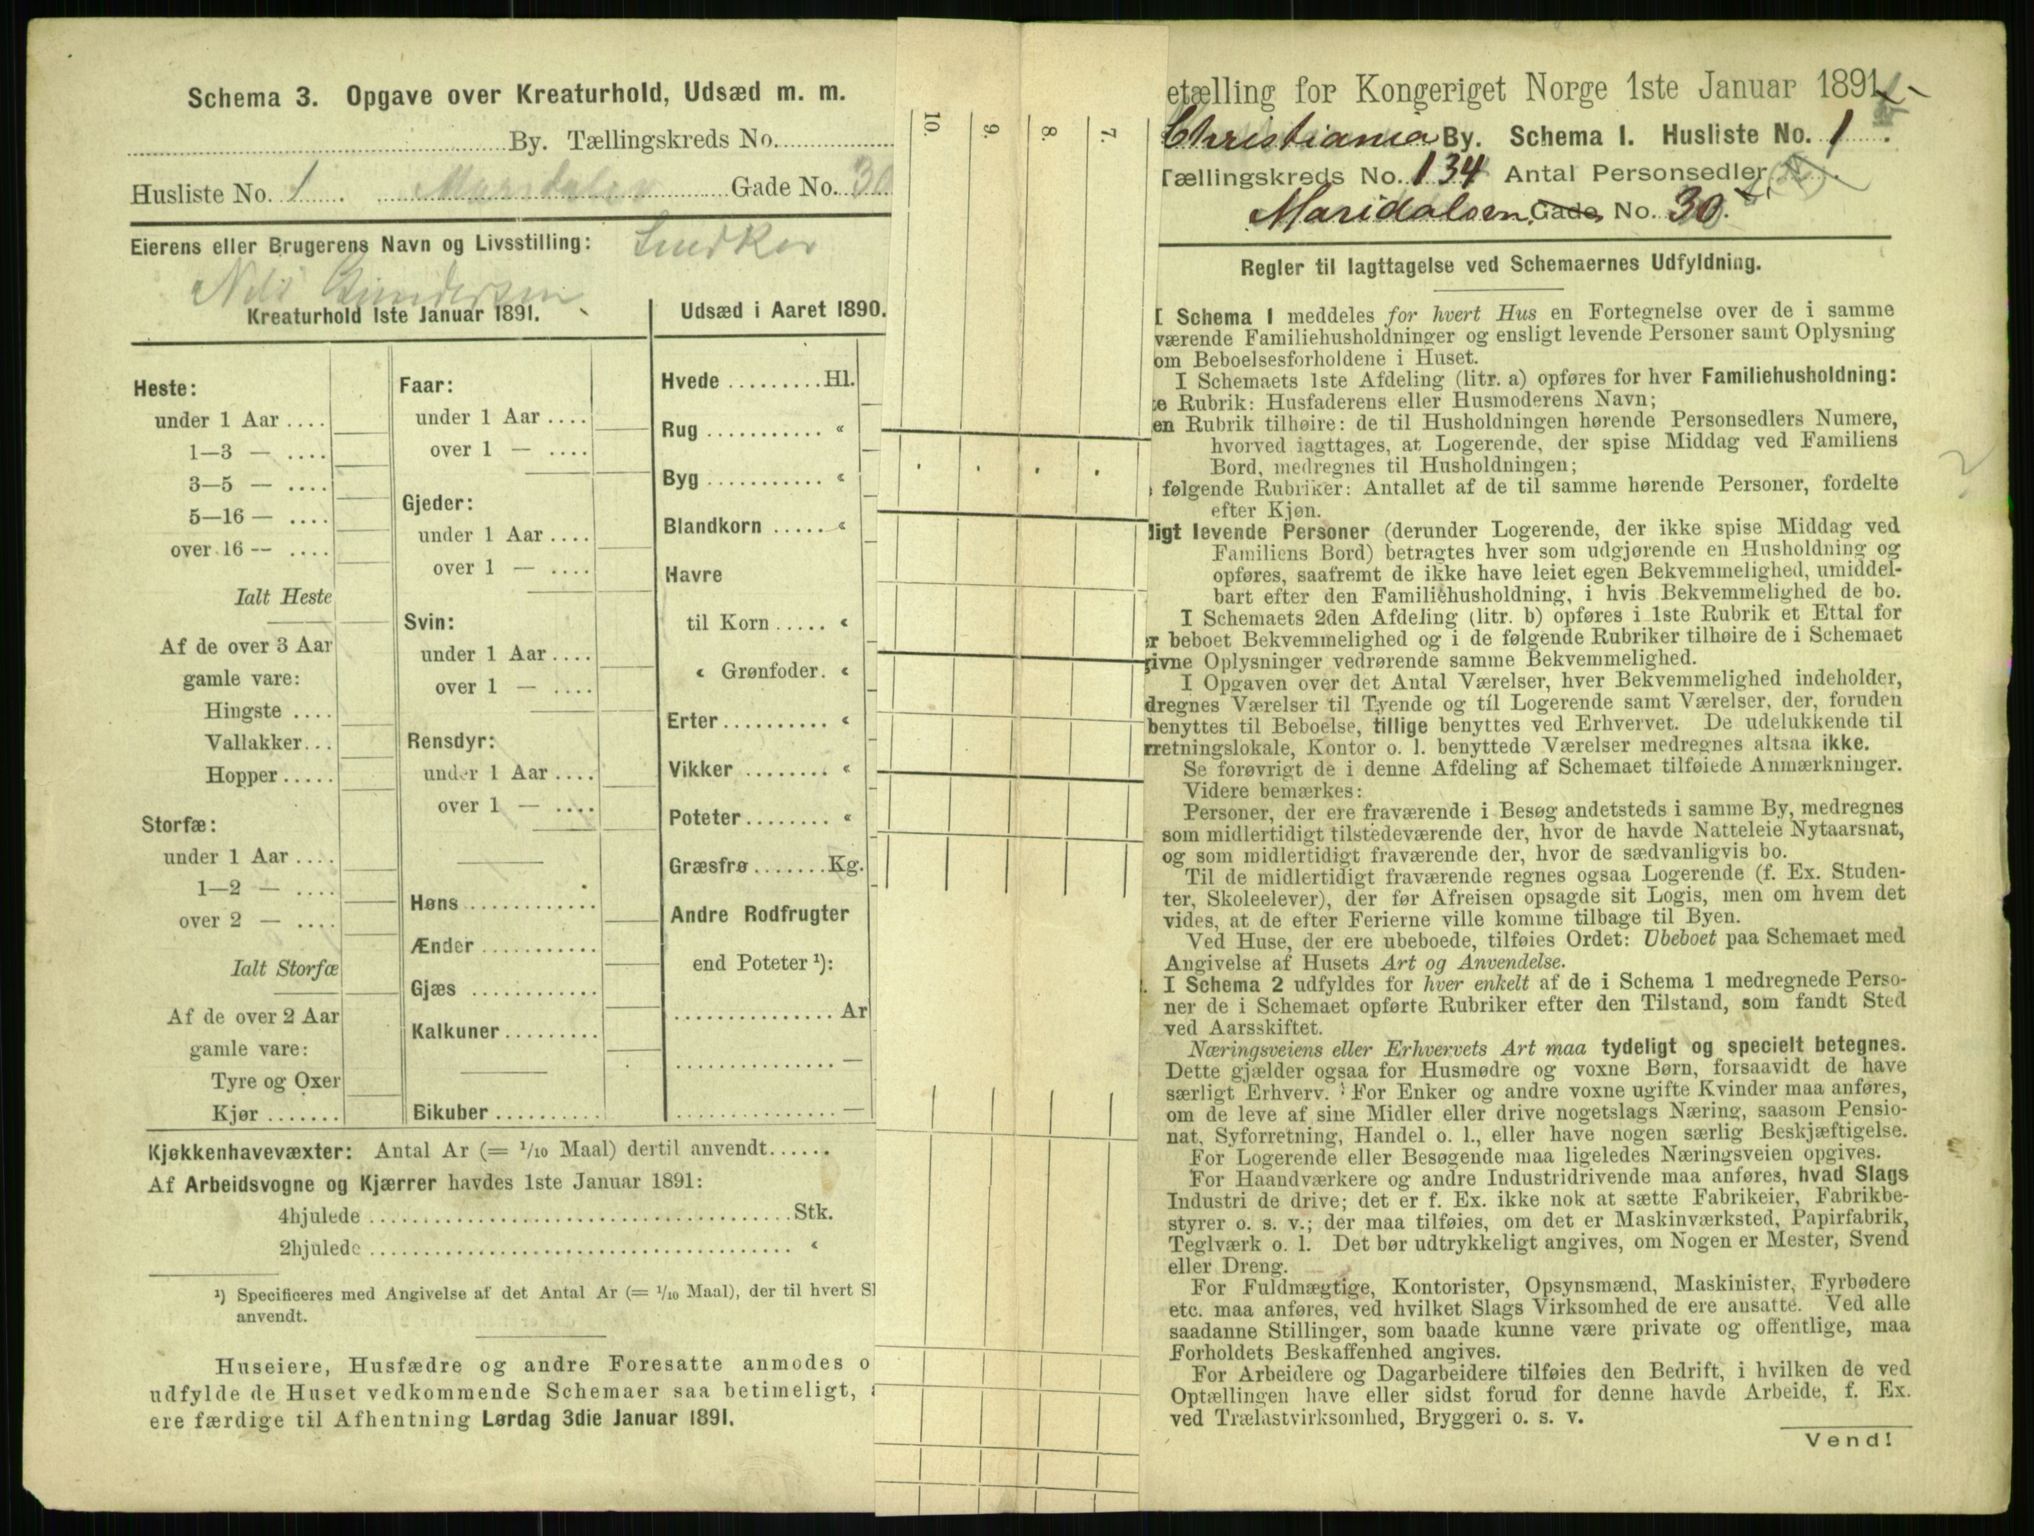 Schema 3. Opgave over Kreaturhold, Udsæd m. m.
By. Tællingskreds No.
Husliste No. 1 Maridalsv Gade No. 30
Eierens eller Brugerens Navn og Livsstilling: Snedker
Nils Gundersen
Kreaturhold 1ste Januar 1891.
Heste:
under 1 Aar
1—3 —
3—5 —
5—16 —
over 16 —
Ialt Heste
Af de over 3 Aar
gamle vare:
Hingste
Vallakker
Hopper
Storfæ:
under 1 Aar
1—2 —
over 2 —
Ialt Storfæ
Af de over 2 Aar
gamle vare:
Tyre og Oxer
Kjør
Faar:
under 1 Aar
over 1 —
Gjeder:
under 1 Aar
over 1 —
Svin:
under 1 Aar
over 1 —
Rensdyr:
under 1 Aar
over 1 —
Høns
Ænder
Gjæs
Kalkuner
Bikuber
Udsæd i Aaret 1890.
Hvede Hl.
Rug «
Byg «
Blandkorn «
Havre
til Korn «
« Grønfoder. «
Erter «
Vikker «
Poteter «
Græsfrø Kg.
Andre Rodfrugter
end Poteter ¹):
Ar
—
—
Kjøkkenhavevæxter: Antal Ar (= 1/10 Maal) dertil anvendt
Af Arbeidsvogne og Kjærrer havdes 1ste Januar 1891:
4hjulede Stk.
2hjulede «
¹) Specificeres med Angivelse af det Antal Ar (= 1/10 Maal), der til hvert Sl
anvendt.
Huseiere, Husfædre og andre Foresatte anmodes o
udfylde de Huset vedkommende Schemaer saa betimeligt, a
ere færdige til Afhentning Lørdag 3die Januar 1891.
10.
9.
8.
7.
etælling for Kongeriget Norge 1ste Januar 1891.
Christiania By. Schema I. Husliste No. 1
Tællingskreds No. 134 Antal Personsedler
Maridalsen Gade No. 30.
Regler til Iagttagelse ved Schemaernes Udfyldning.
I Schema 1 meddeles for hvert Hus en Fortegnelse over de i samme
værende Familiehusholdninger og ensligt levende Personer samt Oplysning
om Beboelsesforholdene i Huset.
I Schemaets 1ste Afdeling (litr. a) opføres for hver Familiehusholdning:
te Rubrik: Husfaderens eller Husmoderens Navn;
en Rubrik tilhøire: de til Husholdningen hørende Personsedlers Numere,
hvorved iagttages, at Logerende, der spise Middag ved Familiens
Bord, medregnes til Husholdningen;
følgende Rubriker: Antallet af de til samme hørende Personer, fordelte
efter Kjøn.
ligt levende Personer (derunder Logerende, der ikke spise Middag ved
Familiens Bord) betragtes hver som udgjørende en Husholdning og
opføres, saafremt de ikke have leiet egen Bekvemmelighed, umiddel-
bart efter den Familiehusholdning, i hvis Bekvemmelighed de bo.
I Schemaets 2den Afdeling (litr. b) opføres i 1ste Rubrik et Ettal for
r beboet Bekvemmelighed og i de følgende Rubriker tilhøire de i Schemaet
givne Oplysninger vedrørende samme Bekvemmelighed.
I Opgaven over det Antal Værelser, hver Bekvemmelighed indeholder,
dregnes Værelser til Tyende og til Logerende samt Værelser, der, foruden
benyttes til Beboelse, tillige benyttes ved Erhvervet. De udelukkende til
rretningslokale, Kontor o. l. benyttede Værelser medregnes altsaa ikke.
Se forøvrigt de i denne Afdeling af Schemaet tilføiede Anmærkninger.
Videre bemærkes:
Personer, der ere fraværende i Besøg andetsteds i samme By, medregnes
som midlertidigt tilstedeværende der, hvor de havde Natteleie Nytaarsnat,
og som midlertidigt fraværende der, hvor de sædvanligvis bo.
Til de midlertidigt fraværende regnes ogsaa Logerende (f. Ex. Studen-
ter, Skoleelever), der før Afreisen opsagde sit Logis, men om hvem det
vides, at de efter Ferierne ville komme tilbage til Byen.
Ved Huse, der ere ubeboede, tilføies Ordet: Ubeboet paa Schemaet med
Angivelse af Husets Art og Anvendelse.
I Schema 2 udfyldes for hver enkelt af de i Schema 1 medregnede Perso-
ner de i Schemaet opførte Rubriker efter den Tilstand, som fandt Sted
ved Aarsskiftet.
Næringsveiens eller Erhvervets Art maa tydeligt og specielt betegnes.
Dette gjælder ogsaa for Husmødre og voxne Børn, forsaavidt de have
særligt Erhverv. For Enker og andre voxne ugifte Kvinder maa anføres,
om de leve af sine Midler eller drive nogetslags Næring, saasom Pensio-
nat, Syforretning, Handel o. l., eller have nogen særlig Beskjæftigelse.
For Logerende eller Besøgende maa ligeledes Næringsveien opgives.
For Haandværkere og andre Industridrivende maa anføres, hvad Slags
Industri de drive; det er f. Ex. ikke nok at sætte Fabrikeier, Fabrikbe-
styrer o. s. v.; der maa tilføies, om det er Maskinværksted, Papirfabrik,
Teglværk o. l. Det bør udtrykkeligt angives, om Nogen er Mester, Svend
eller Dreng.
For Fuldmægtige, Kontorister, Opsynsmænd, Maskinister, Fyrbødere
etc. maa anføres, ved hvilket Slags Virksomhed de ere ansatte. Ved alle
saadanne Stillinger, som baade kunne være private og offentlige, maa
Forholdets Beskaffenhed angives.
For Arbeidere og Dagarbeidere tilføies den Bedrift, i hvilken de ved
Optællingen have eller sidst forud for denne havde Arbeide, f. Ex.
ved Trælastvirksomhed, Bryggeri o. s. v.
Vend!